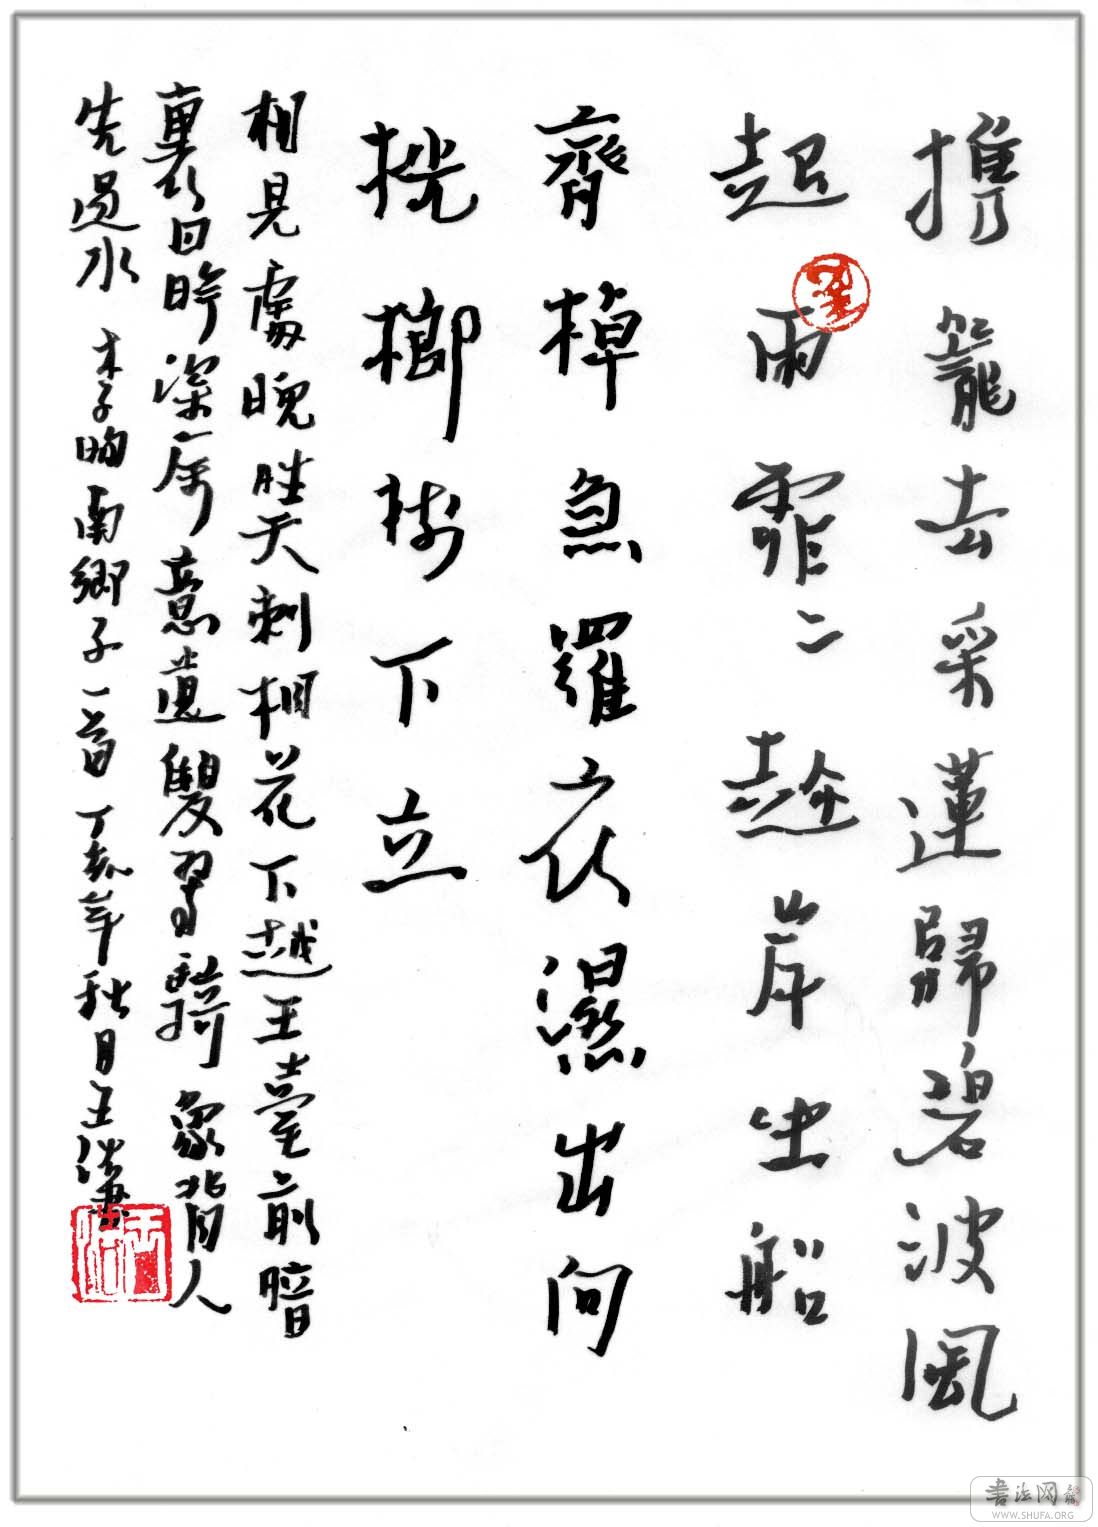 攜籠去采蓮歸碧波風
起雨霏二趂岸坐船
齊棹急羅衣濕出向
桄榔樹下立
相見處晚晴天刺桐花下越王臺前暗
裏回眸深屬意遺雙翠騎象背人
先過水 李珣南鄉子一首 丁亥年秋月王
書法网
WWW.SHUFA.ORG